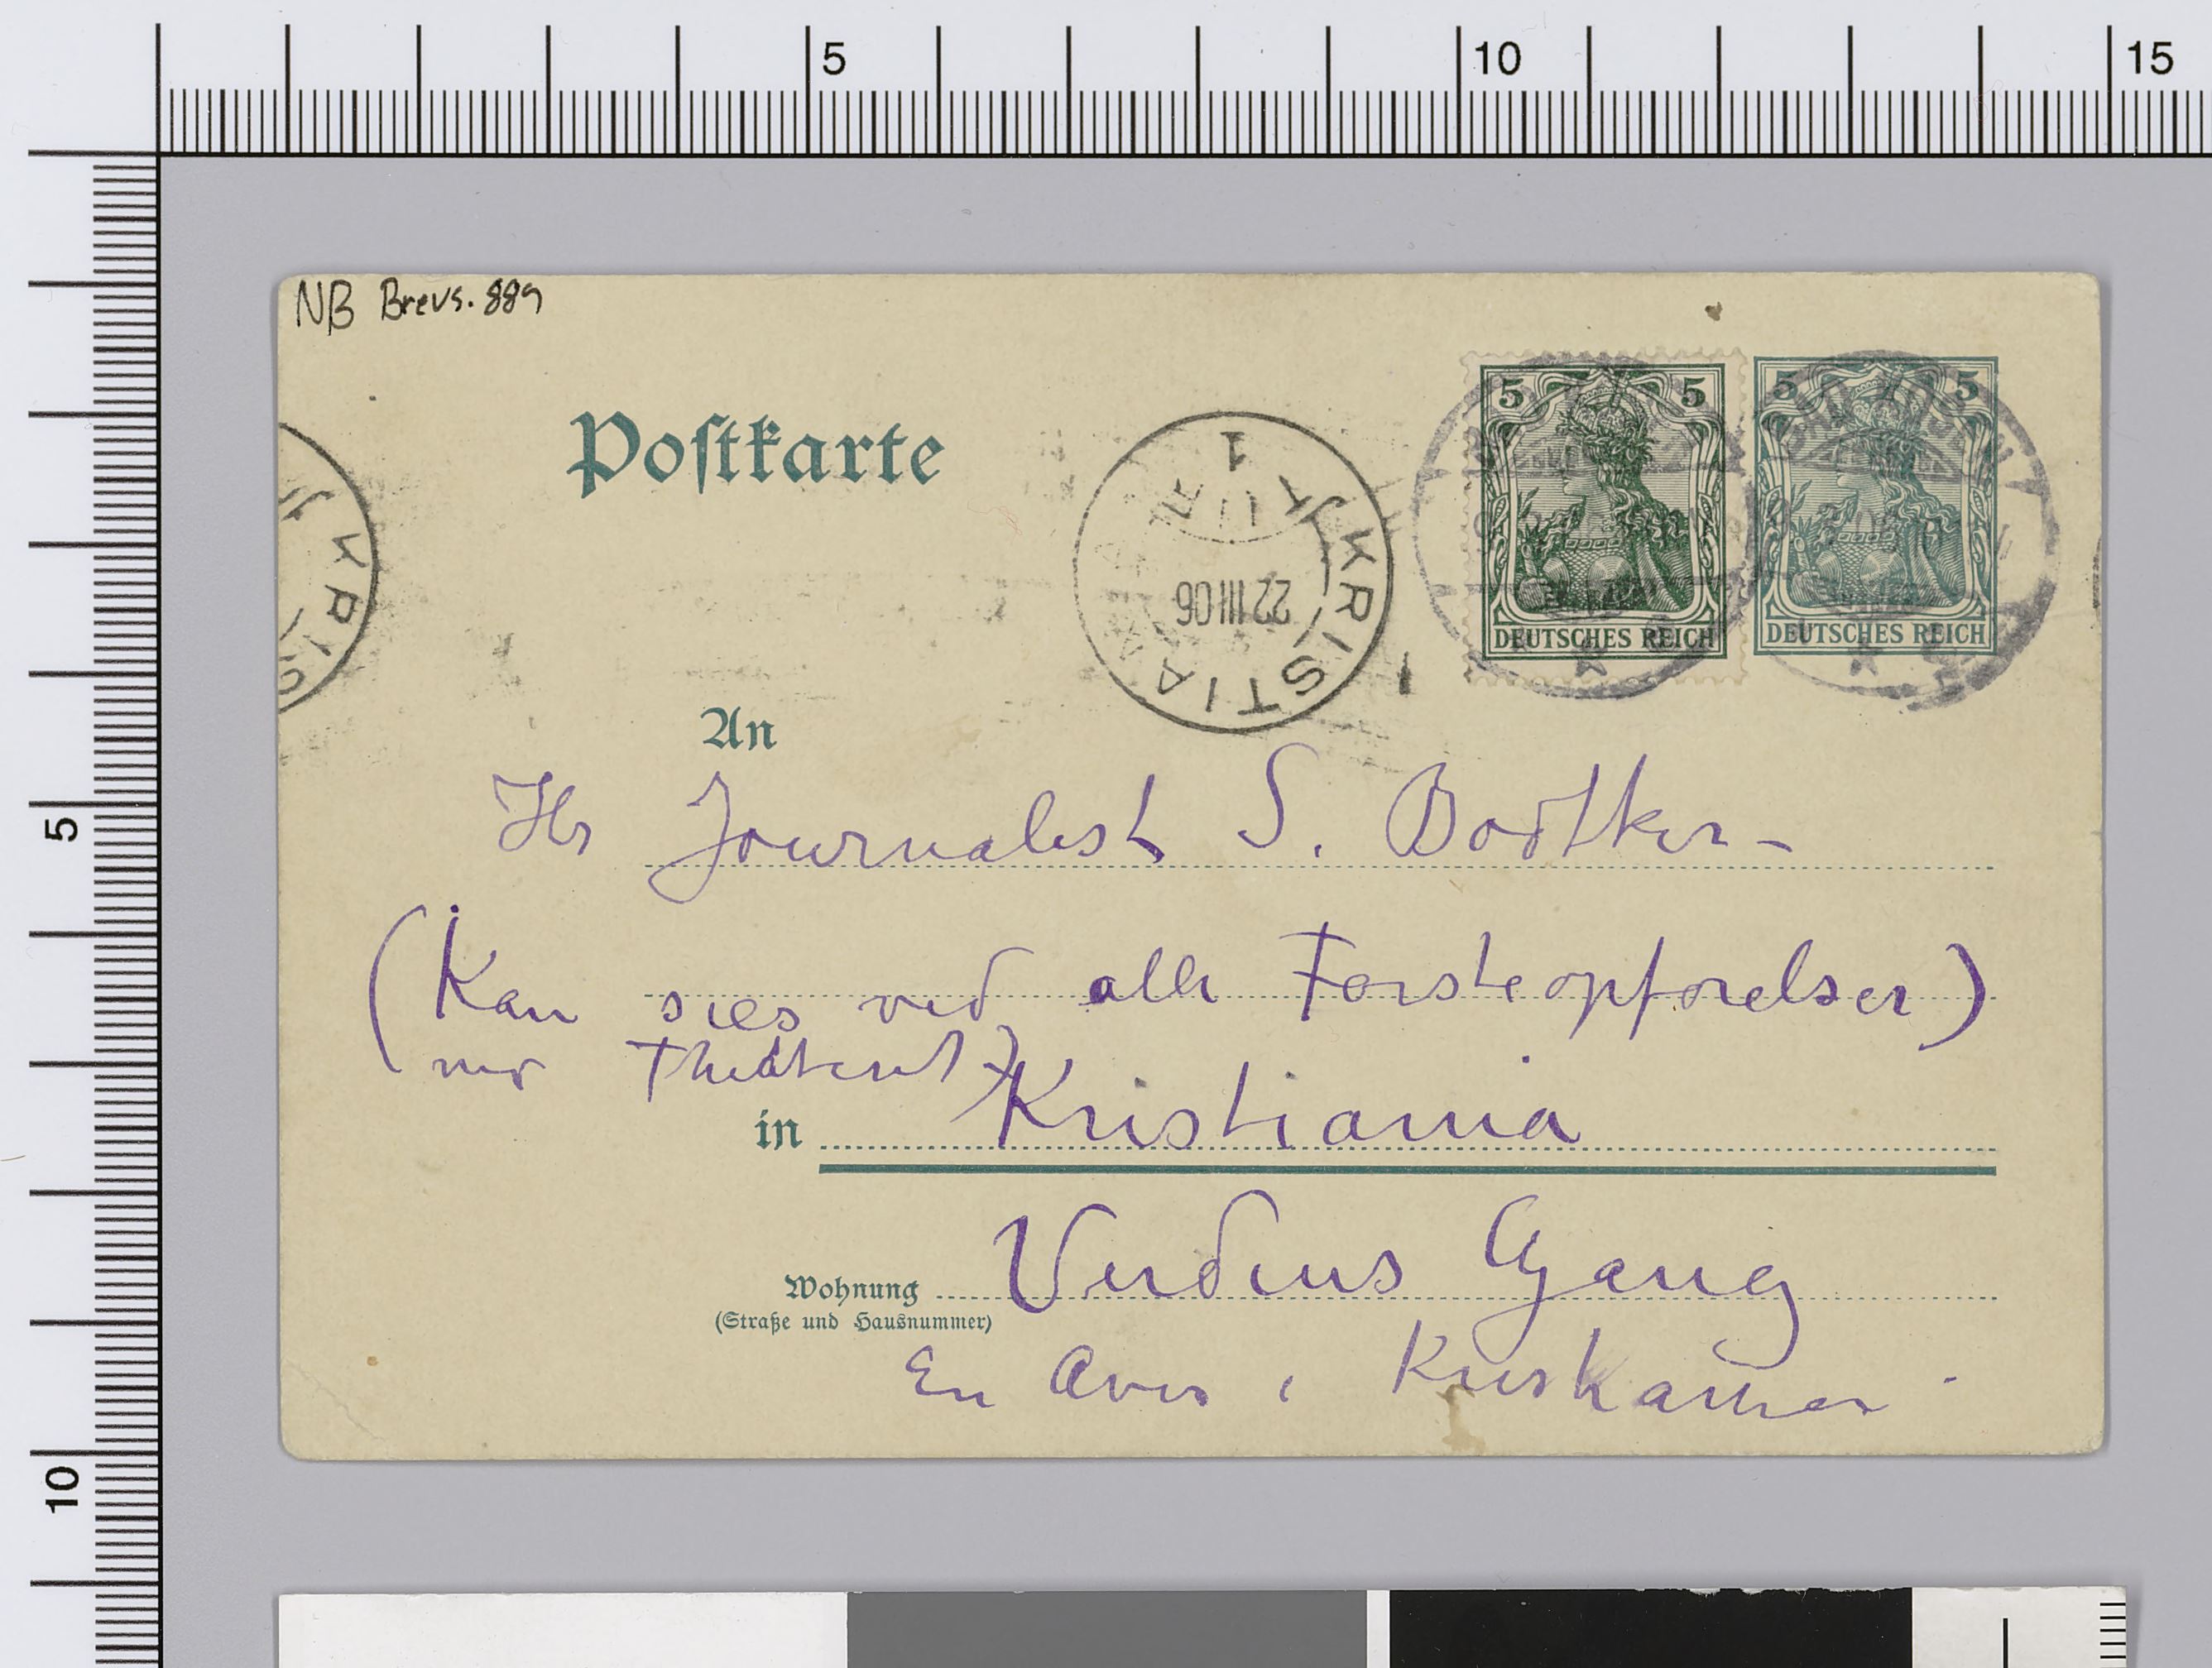 5
10
15
5
10
NB Brevs. 889
Postkarte
5 5
DEUTSCHES REICH
5 5
DEUTSCHES REICH
KRISTIA
1
TUR
22 III 06
KRIS
An
Hr Journalist S. Bodtker-
(Kan sees ved alle Forsteopforelser)
ved Theatret)
in Kristiania
Wohnung Verdens Gang
(Straße und Hausnummer)
En Avis i Kristiania